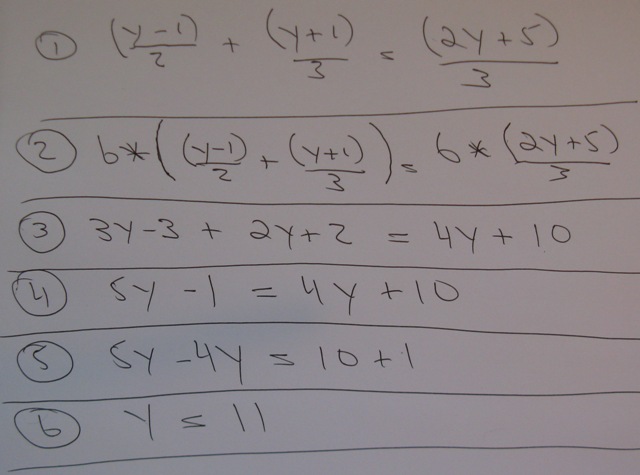 ① (y-1)/2 + (y+1)/3 = (2y+5)/3
② 6*((y-1)/2 + (y+1)/3) = 6*(2y+5)/3
③ 3y-3 + 2y+2 = 4y+10
④ 5y-1 = 4y+10
⑤ 5y-4y = 10+1
⑥ y = 11